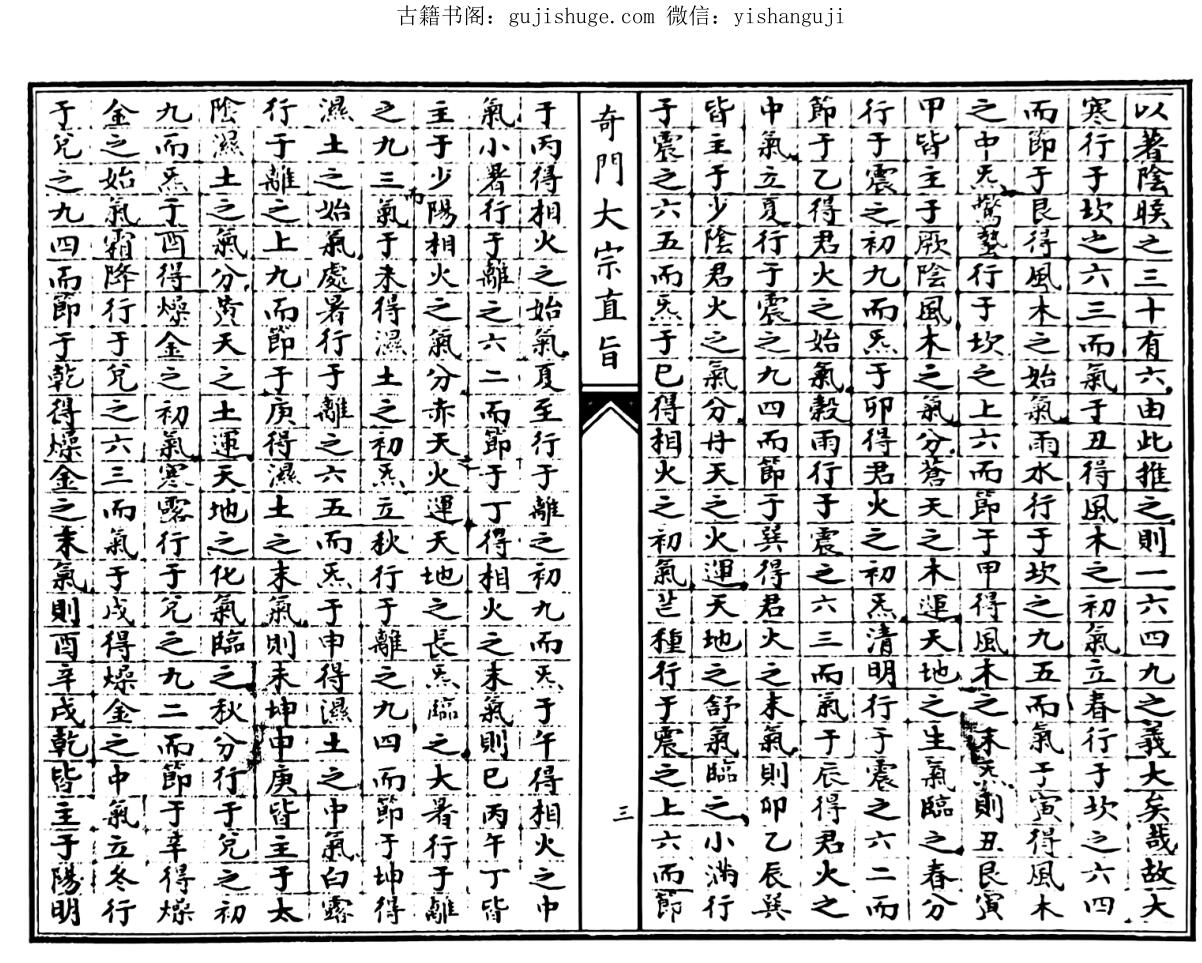 古籍书阁：gujishuge.com 微信：yishanguji
以著陰睽之三十有六由此推之則一六四九之義大矣哉故大
寒行于坎之六三而氣于丑得風木之初氣立春行于坎之六四
而節于艮得風木之始氣雨水行于坎之九五而氣于寅得風木
之中炁驚蟄行于坎之上六而節于甲得風木之末炁則丑艮寅
甲皆主于厥陰風木之氣分蒼天之木運天地之生氣臨之春分
行于震之初九而炁于卯得君火之初炁清明行于震之六二而
節于乙得君火之始氣穀雨行于震之六三而氣于辰得君火之
中氣立夏行于震之九四而節于巽得君火之末氣則卯乙辰巽
皆主于少陰君火之氣分丹天之火運天地之舒氣臨之小滿行
于震之六五而炁于巳得相火之初氣芒種行于震之上六而節
奇門大宗直旨
三
于丙得相火之始氣夏至行于離之初九而炁于午得相火之中
氣小暑行于離之六二而節于丁得相火之末氣則巳丙午丁皆
主于少陽相火之氣分赤天之火運天地之長炁臨之大暑行于離
之九三而氣于未得濕土之初炁立秋行于離之九四而節于坤得
濕土之始氣處暑行于離之六五而炁于申得濕土之中氣白露
行于離之上九而節于庚得濕土之末氣則未坤申庚皆主于太
陰濕土之氣分黄天之土運天地之化氣臨之秋分行于兌之初
九而炁于酉得燥金之初氣寒露行于兌之九二而節于辛得燥
金之始氣霜降行于兌之六三而氣于戌得燥金之中氣立冬行
于兌之九四而節于乾得燥金之末氣則酉辛戌乾皆主于陽明